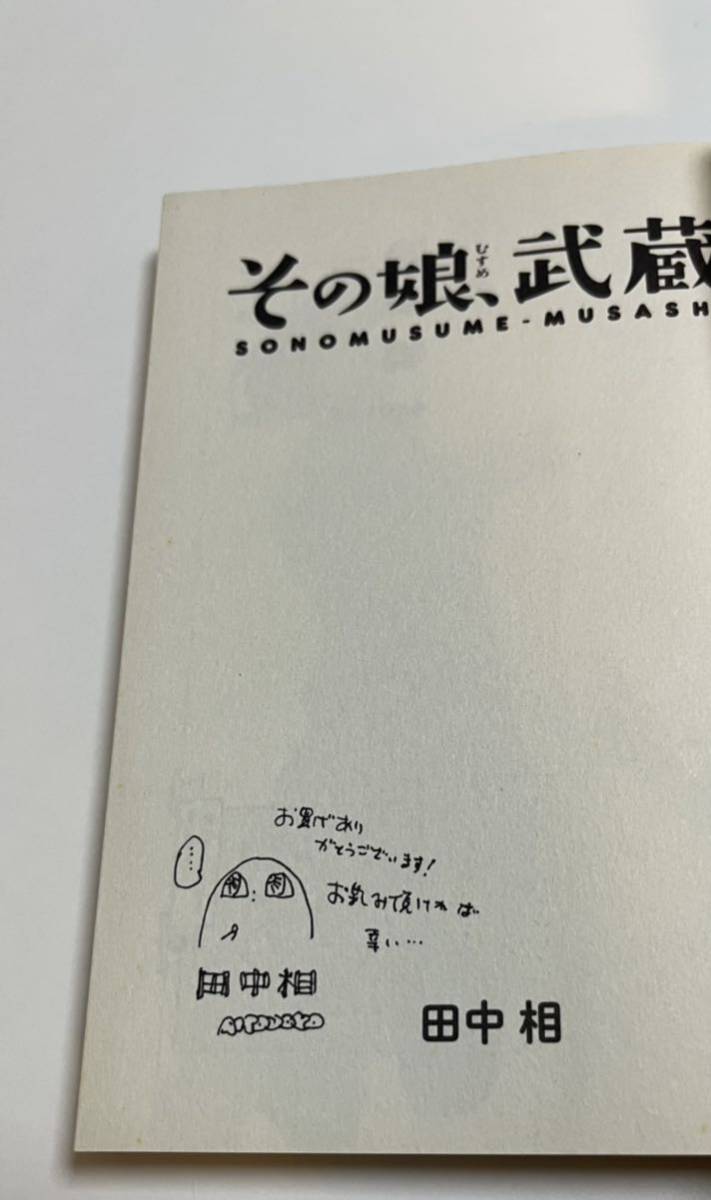 その娘、武蔵
むすめ
SONOMUSUME-MUSASH
お買上あり
がとうございます!
お楽しみ頂ければ
幸い…
……
田中相
田中 相